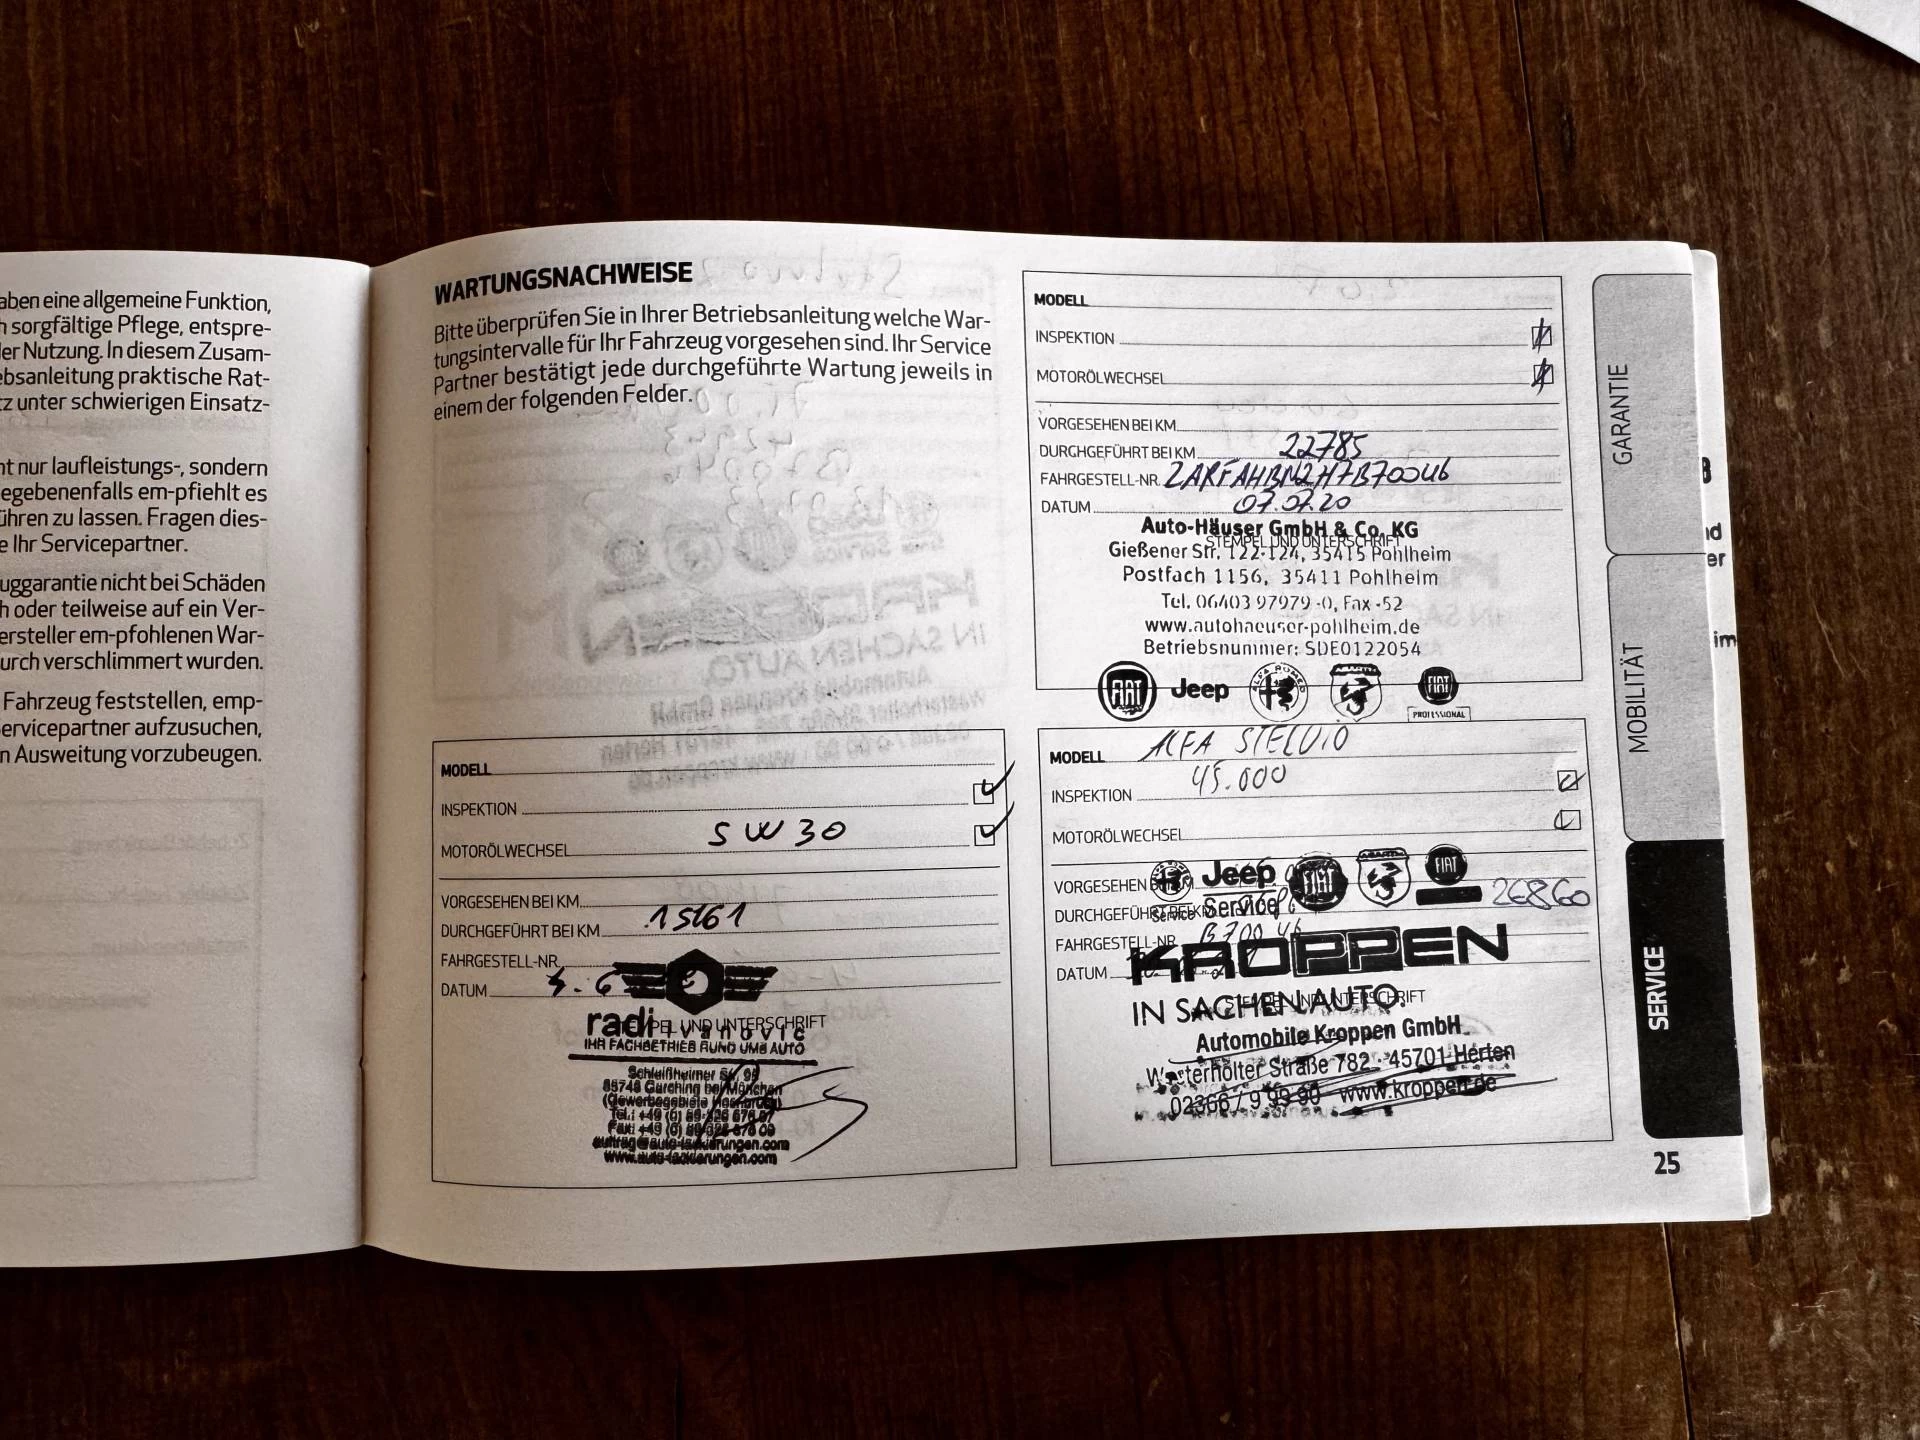 aben eine allgemeine Funktion,
h sorgfältige Pflege, entspre-
der Nutzung. In diesem Zusam-
ebsanleitung praktische Rat-
tz unter schwierigen Einsatz-
nt nur laufleistungs-, sondern
egebenenfalls em-pfiehlt es
ühren zu lassen. Fragen dies-
e Ihr Servicepartner.
uggarantie nicht bei Schäden
h oder teilweise auf ein Ver-
ersteller em-pfohlenen War-
urch verschlimmert wurden.
Fahrzeug feststellen, emp-
ervicepartner aufzusuchen,
n Ausweitung vorzubeugen.
WARTUNGSNACHWEISE
Bitte überprüfen Sie in Ihrer Betriebsanleitung welche War-
tungsintervalle für Ihr Fahrzeug vorgesehen sind. Ihr Service
Partner bestätigt jede durchgeführte Wartung jeweils in
einem der folgenden Felder.
MODELL
INSPEKTION
MOTORÖLWECHSEL 5W30
VORGESEHEN BEI KM
DURCHGEFÜHRT BEI KM 15161
FAHRGESTELL-NR.
DATUM
STEMPEL UND UNTERSCHRIFT
radi ivanovic
IHR FACHBETRIEB RUND UMS AUTO
Schleißheimer St. 95
85748 Garching bei München
www.auto-lackierungen.com
MODELL
INSPEKTION
MOTORÖLWECHSEL
VORGESEHEN BEI KM
DURCHGEFÜHRT BEI KM 22785
FAHRGESTELL-NR. ZARFAHBN2H7B70046
DATUM 07.07.20
STEMPEL UND UNTERSCHRIFT
Auto-Häuser GmbH & Co. KG
Gießener Str. 122-124, 35415 Pohlheim
Postfach 1156, 35411 Pohlheim
Tel. 06403 97979-0, Fax -52
www.autohaeuser-pohlheim.de
Betriebsnummer: SDE0122054
FIAT Jeep ALFA ROMEO ABARTH FIAT
PROFESSIONAL
MODELL ALFA STELVIO
INSPEKTION 45.000
MOTORÖLWECHSEL
VORGESEHEN BEI KM
DURCHGEFÜHRT BEI KM 26860
FAHRGESTELL-NR. B70046
DATUM
Jeep FIAT ABARTH FIAT
Service Service
STEMPEL UND UNTERSCHRIFT
KROPPEN
IN SACHEN AUTO.
Automobile Kroppen GmbH
Westerholter Straße 782 · 45701 Herten
02366 / 9 99 90 www.kroppen.de
GARANTIE
MOBILITÄT
SERVICE
25